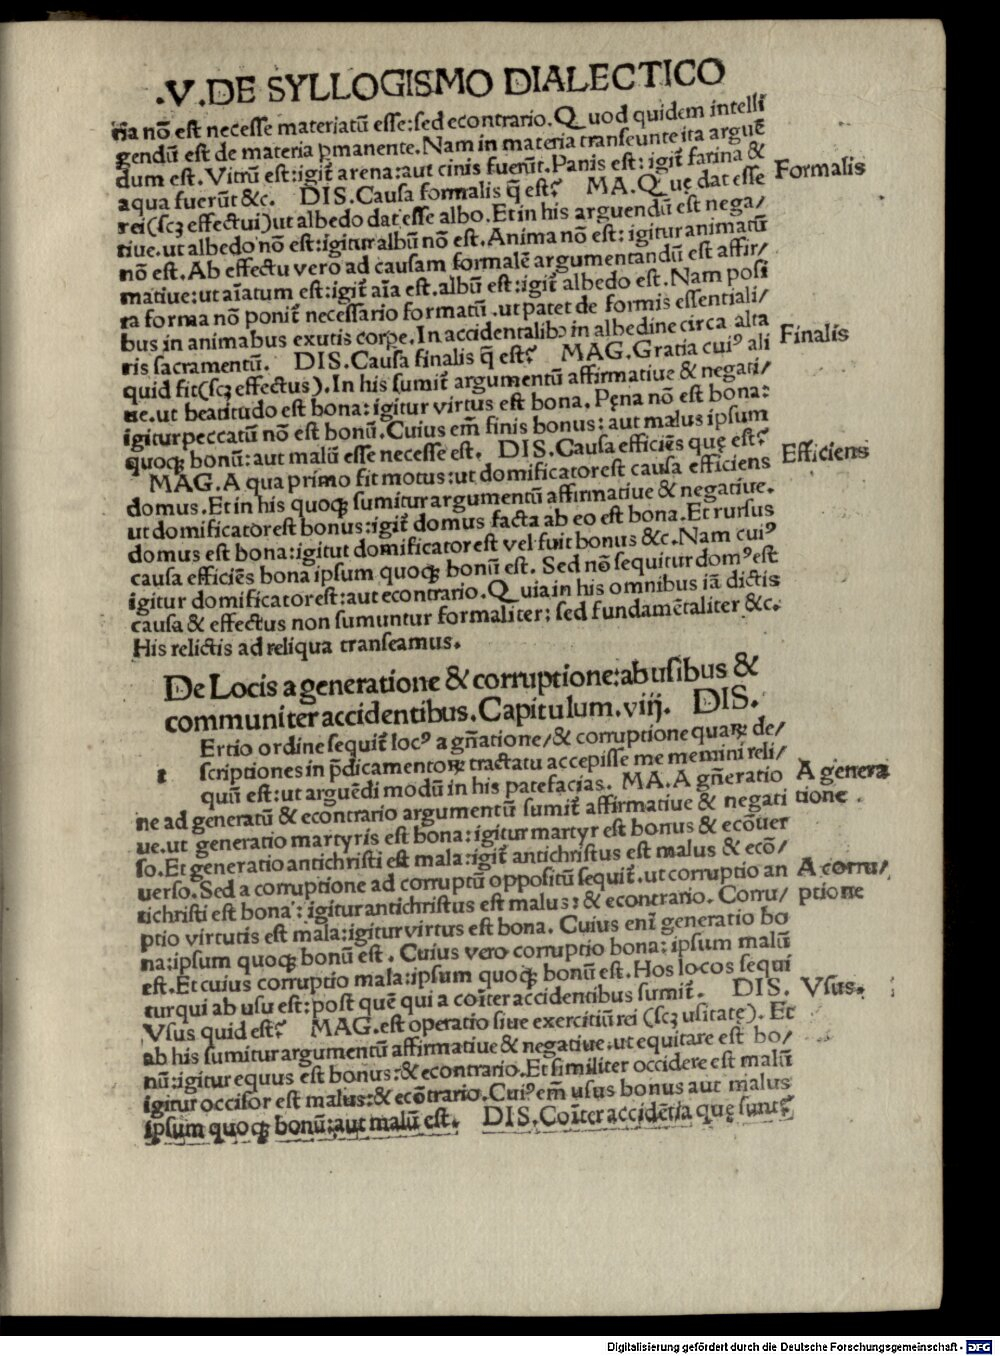 .V.DE SYLLOGISMO DIALECTICO
ria nõ est necesse materiatũ esse:sed econtrario.Quod quidem intelli
gendũ est de materia ꝑmanente.Nam in materia transeunte ita arguẽ
dum est.Vitrũ est:igit̃ arena:aut cinis fuerũt.Panis est:igit̃ farina &
aqua fuerũt &c. DIS.Causa formalis q̃ est? MA.Quę dat esse
Formalis
rei(scꝫ effectui)ut albedo dat esse albo.Et in his arguendũ est nega/
tiue.ut albedo nõ est:igitur albũ nõ est.Anima nõ est: igitur animatũ
nõ est.Ab effectu vero ad causam formalẽ argumentandũ est affir/
matiue:ut aĩatum est:igit̃ aĩa est.albũ est:igit̃ albedo est.Nam posi
ta forma nõ ponit̃ necessario formatũ.ut patet de formis essentiali/
bus in animabus exutis corꝑe.In accidentalibꝫ in albedine circa alta
ris sacramentũ. DIS.Causa finalis q̃ est? MAG.Gratia cuiꝰ ali
Finalis
quid fit(scꝫ effectus).In his sumit̃ argumentũ affirmatiue & negati/
ue.ut beatitudo est bona:igitur virtus est bona.Pęna nõ est bona:
igitur peccatũ nõ est bonũ.Cuius em̃ finis bonus:aut malus ipsum
quoqꝫ bonũ:aut malũ esse necesse est. DIS.Causa efficiẽs quę est?
Efficiens
MAG.A qua primo fit motus:ut domificator est causa efficiens
domus.Et in his quoqꝫ sumitur argumentũ affirmatiue & negatiue.
ut domificator est bonus:igit̃ domus facta ab eo est bona.Et rursus
domus est bona:igitut domificator est vel fuit bonus &c.Nam cuiꝰ
causa efficiẽs bona ipsum quoqꝫ bonũ est. Sed nõ sequitur domꝰ est
igitur domificator est:aut econtrario.Quia in his omnibus iã dictis
causa & effectus non sumuntur formaliter; sed fundamẽtaliter &c.
His relictis ad reliqua transeamus.
De Locis a generatione & corruptione:ab usibus &
communiter accidentibus.Capitulum.viij. DIS.
t
Ertio ordine sequit̃ locꝰ a gñatione/& corruptione quaꝝ de/
scriptiones in p̃dicamentoꝝ tractatu accepisse me memini reli/
quũ est:ut arguẽdi modũ in his patefacias. MA.A gñeratio
A genera
ne ad generatũ & econtrario argumentũ sumit̃ affirmatiue & negati
tione .
ue.ut generatio martyris est bona:igitur martyr est bonus & ecõuer
so.Et generatio antichristi est mala:igit̃ antichristus est malus & ecõ/
uerso.Sed a corruptione ad corruptũ oppositũ sequit̃.ut corruptio an
A corru/
tichristi est bona:igitur antichristus est malus:& econtrario. Corru/
ptione
ptio virtutis est mala:igitur virtus est bona. Cuius enĩ generatio bo
na:ipsum quoqꝫ bonũ est. Cuius vero corruptio bona: ipsum malũ
est.Et cuius corruptio mala:ipsum quoqꝫ bonũ est.Hos locos sequi
tur qui ab usu est:post quẽ qui a cõĩter accidentibus sumit̃. DIS.
Vsus.
Vsus quid est? MAG.est operatio siue exercitiũ rei (scꝫ usitatę). Et
ab his sumitur argumentũ affirmatiue & negatiue.ut equitare est bo/
nũ:igitur equus est bonus:& econtrario.Et similiter occidere est malũ
igitur occisor est malus:& ecõtrario.Cuiꝰ em̃ usus bonus aut malus
ipsum quoqꝫ bonũ:aut malũ est. DIS.Cõĩter accidẽtia quę sunt?
Digitalisierung gefördert durch die Deutsche Forschungsgemeinschaft - DFG